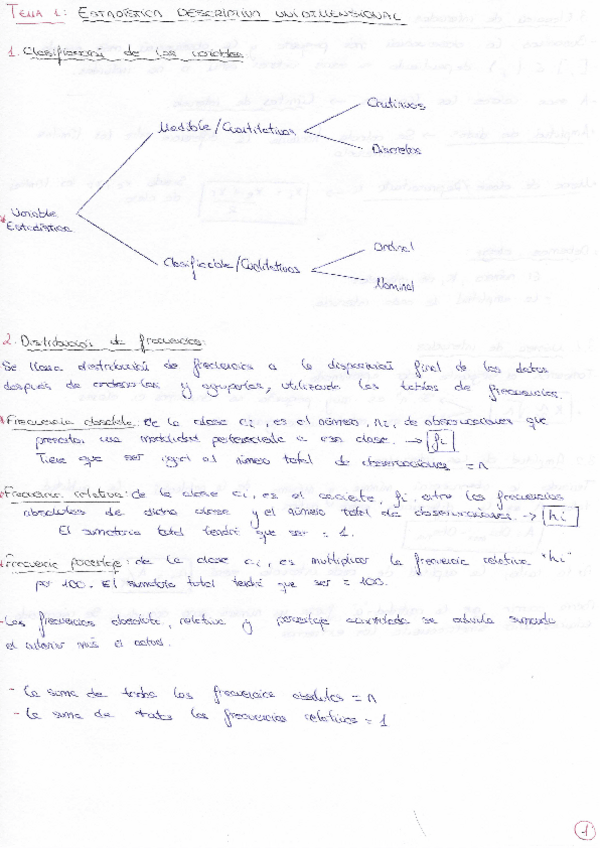 TEMA 1: ESTADÍSTICA DESCRIPTIVA UNIDIMENSIONAL
1. Clasificación de las variables
Continuas
Medible/Cuantitativas
Discretas
Variable
Estadística
Ordinal
Clasificable/Cualitativas
Nominal
2. Distribución de frecuencias:
Se llama distribución de frecuencias a la disposición final de los datos
después de ordenarlos y agruparlos, utilizando las tablas de frecuencias.
Frecuencia absoluta: de la clase ci, es el número, ni, de observaciones que
presenta una modalidad perteneciente a esa clase. → fi
Tiene que ser igual al número total de observaciones = n
Frecuencia relativa: de la clase ci, es el cociente, fi, entre las frecuencias
absolutas de dicha clase y el número total de observaciones → hi
El sumatorio total tendrá que ser = 1.
Frecuencia porcentaje: de la clase ci, es multiplicar la frecuencia relativa "hi"
por 100. El sumatorio total tendrá que ser = 100.
- Las frecuencias absoluta, relativa y porcentaje acumulada se calcula sumando
el anterior más el actual.
- La suma de todas las frecuencias absolutas = n
- La suma de todas las frecuencias relativas = 1
1